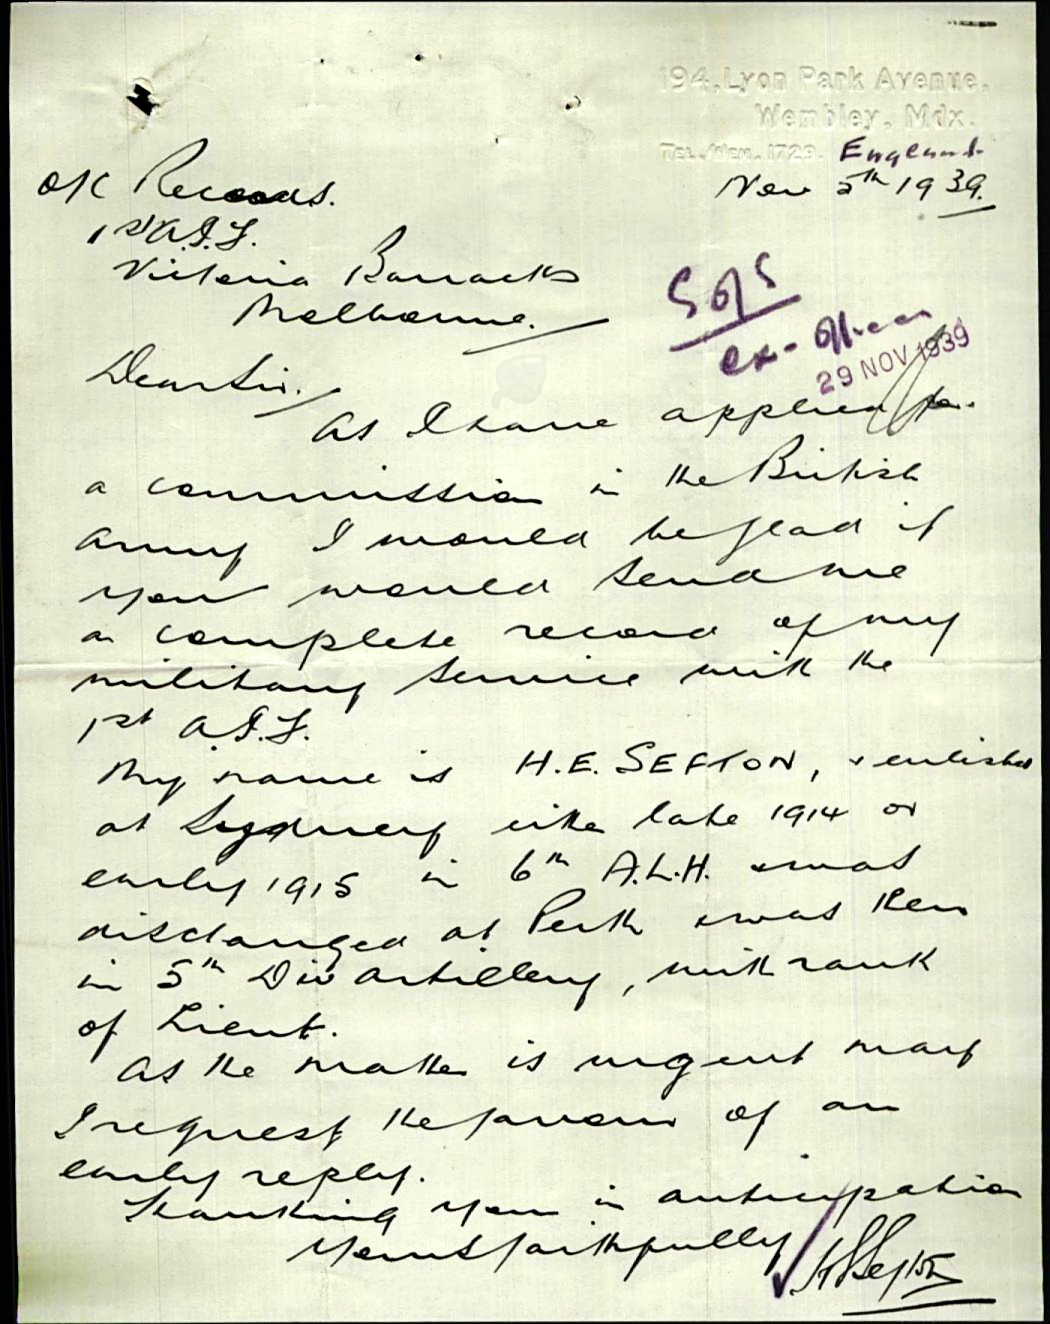 194, Lyon Park Avenue,
Wembley, Mdx.
Tel. Wem. 1729. England.
Nov 5th 1939.
O/C Records.
1st A.I.F.
Victoria Barracks
Melbourne.
SofS
ex-Officer
29 NOV 1939
Dear Sir.
As I have applied for
a commission in the British
Army I would be glad if
you would send me
a complete record of my
military service with the
1st A.I.F.
My name is H.E. SEFTON, & enlisted
at Sydney either late 1914 or
early 1915 in 6th A.L.H. & was
discharged at Perth & was then
in 5th Div Artillery, with rank
of Lieut.
As the matter is urgent may
I request the favour of an
early reply.
Thanking you in anticipation
Yours faithfully
H E Sefton